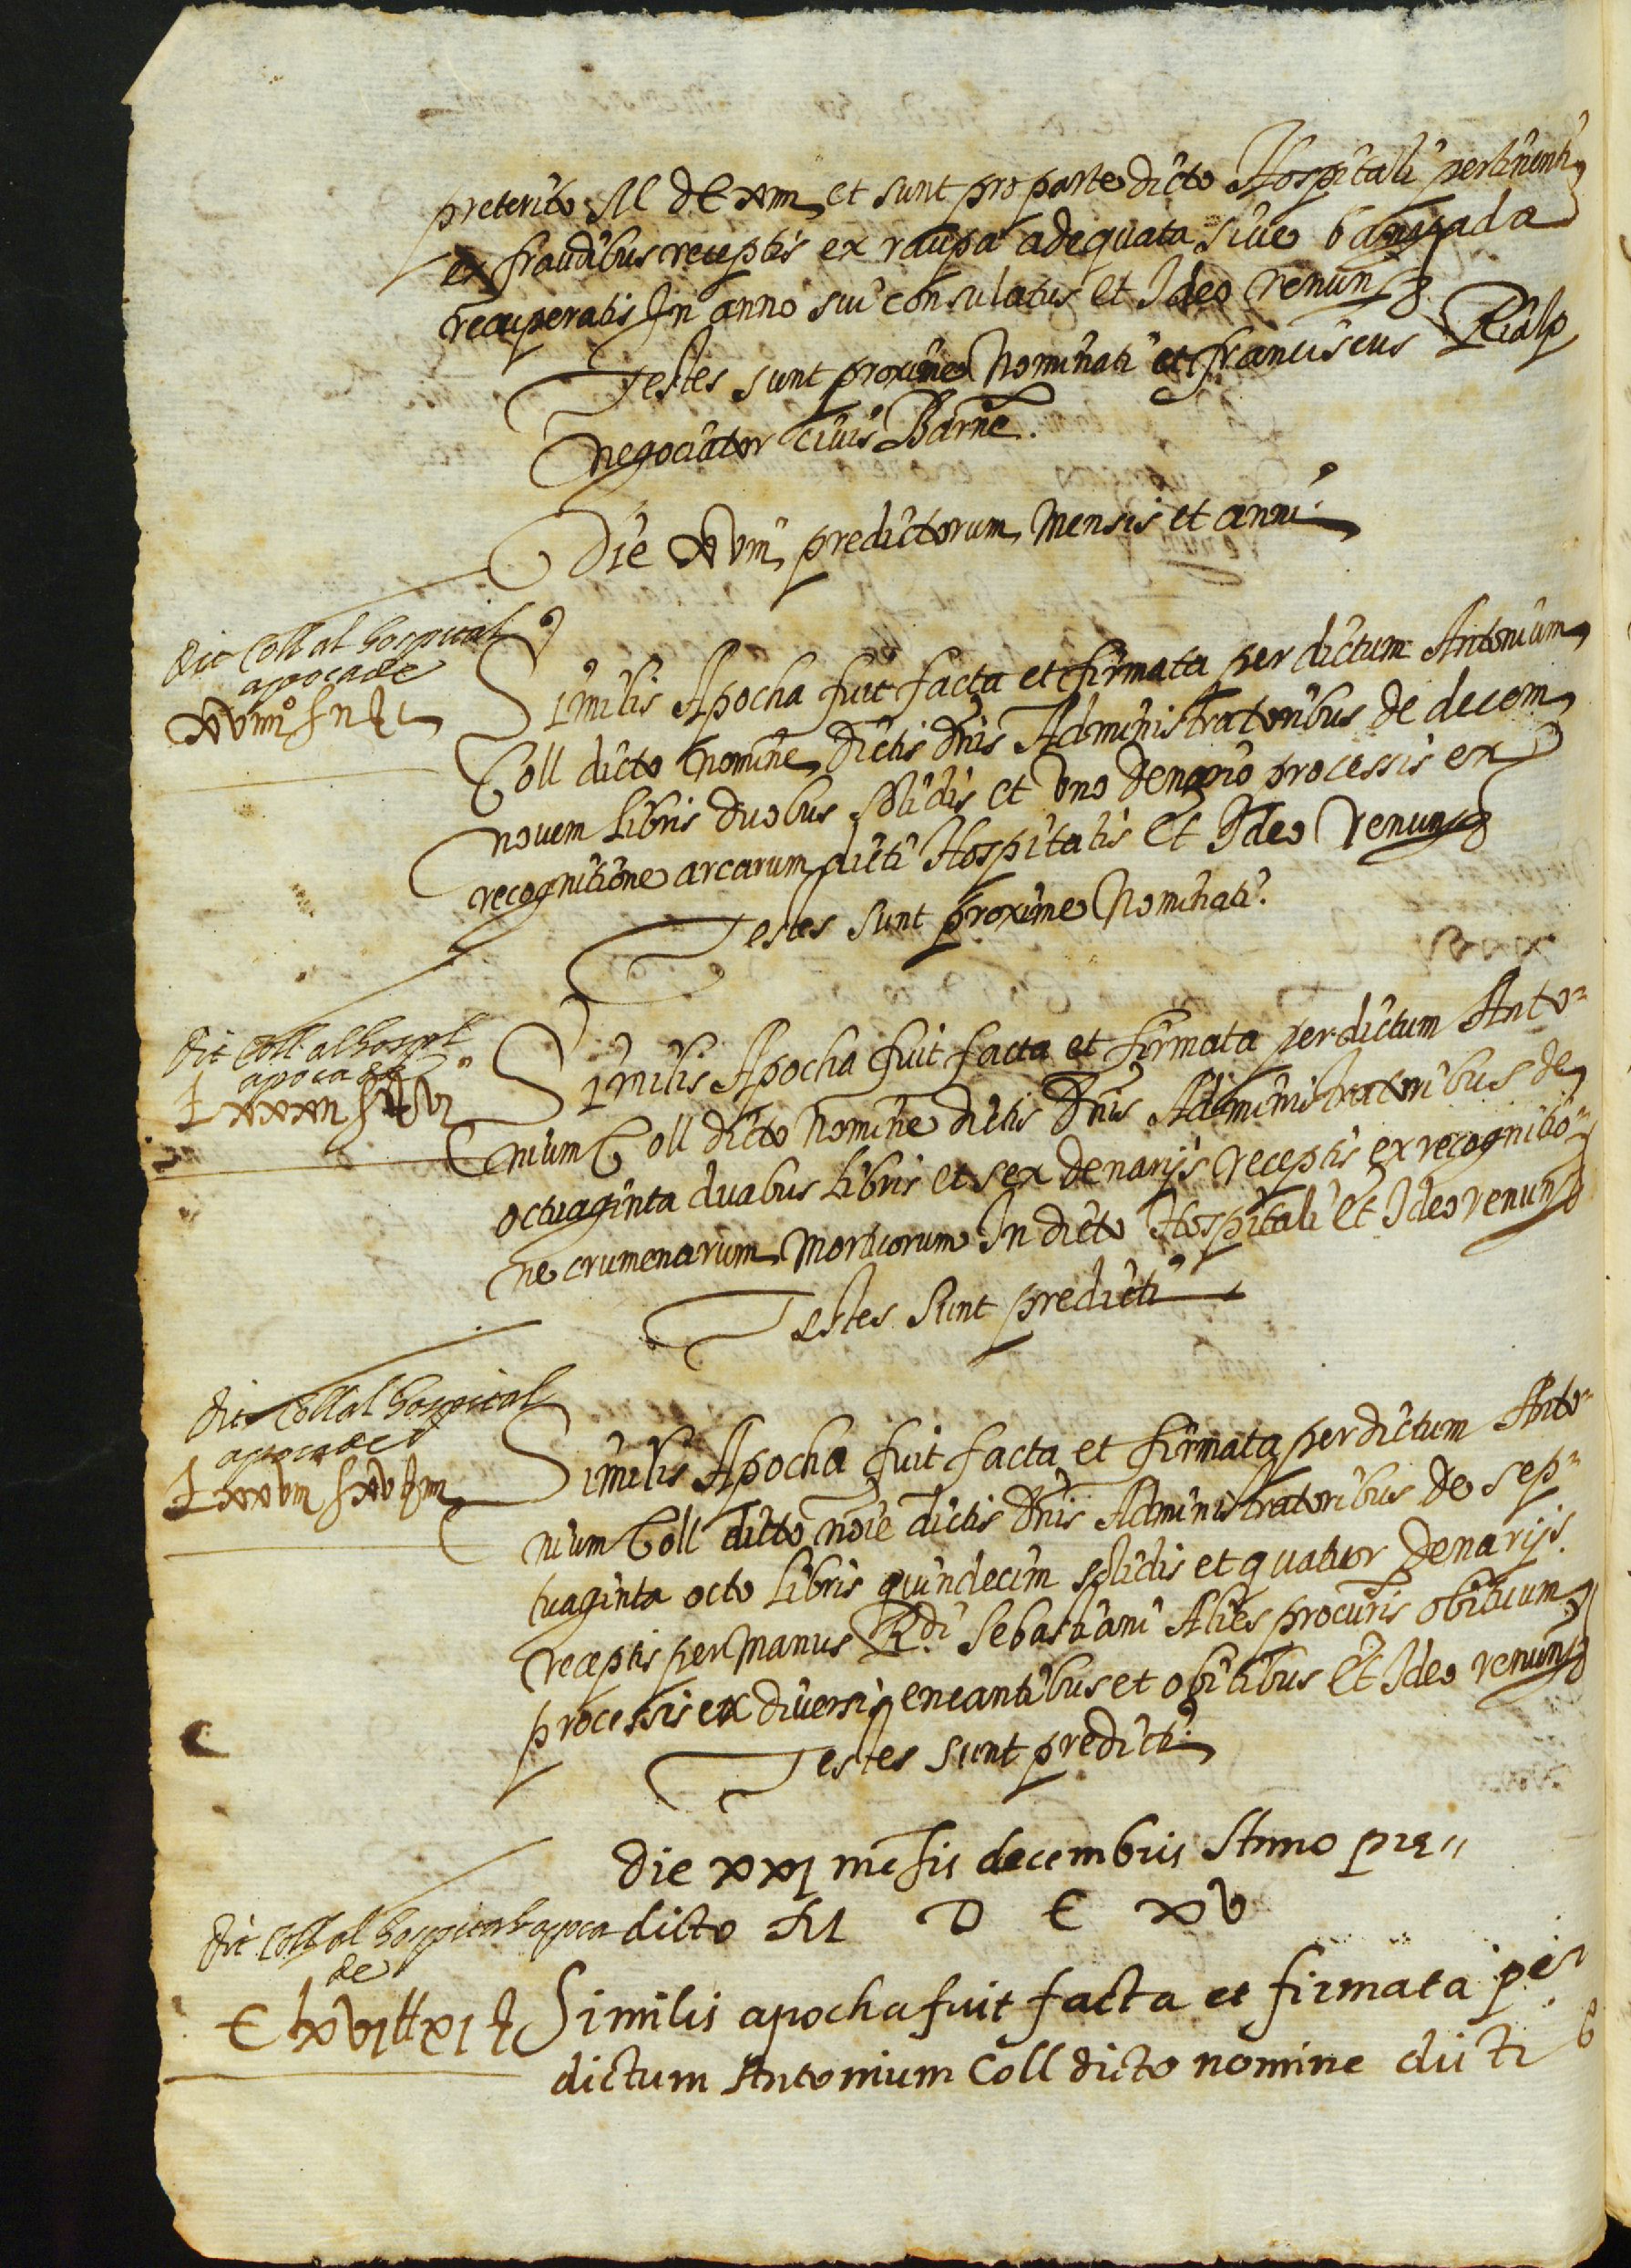 preterito M DC xiiii et sunt pro parte dicto Hospitali pertinenti
ex fraudibus receptis ex raupa adequata sive
recuperatis In anno sui consulatus Et Ideo renun
Testes sunt proxime Nominati et franciscus Rialp
negociator civis Barne.
Die xviii predictorum Mensis et anni
dit Coll al hospital
apoca de
Similis Apocha fuit facta et firmata per dictum Antonium
Coll dicto nomine Dictis Dnis Administratoribus de decem
novem Libris duobus solidis et uno denario processis ex
recognitione arcarum dicti Hospitalis Et Ideo renun
Testes sunt proxime Nominati.
dit Coll al hospl
apoca de
Similis Apocha fuit facta et firmata per dictum Anto-
nium Coll dicto nomine dictis Dnis Administratoribus de
octuaginta duabus Libris et sex denarijs receptis ex recognitio-
ne crumenarum Mortuorum In dicto Hospitali Et Ideo renun
Testes sunt predicti
dit Coll al hospital
apoca de
Similis Apocha fuit facta et firmata per dictum Anto-
nium Coll dicto noie dictis Dnis Administratoribus de sep-
tuaginta octo Libris quindecim solidis et quatuor denarijs.
receptis per Manus Rdi Sebastiani Alies procuris obituum
processis ex diversis encantibus et obitibus Et Ideo renun
Testes sunt predicti
Die xxj mesis decembris Anno pre-
dicto M D C XV
dit Coll al hospital apca
de
Similis apocha fuit facta et firmata per
dictum Antonium Coll dicto nomine dicti